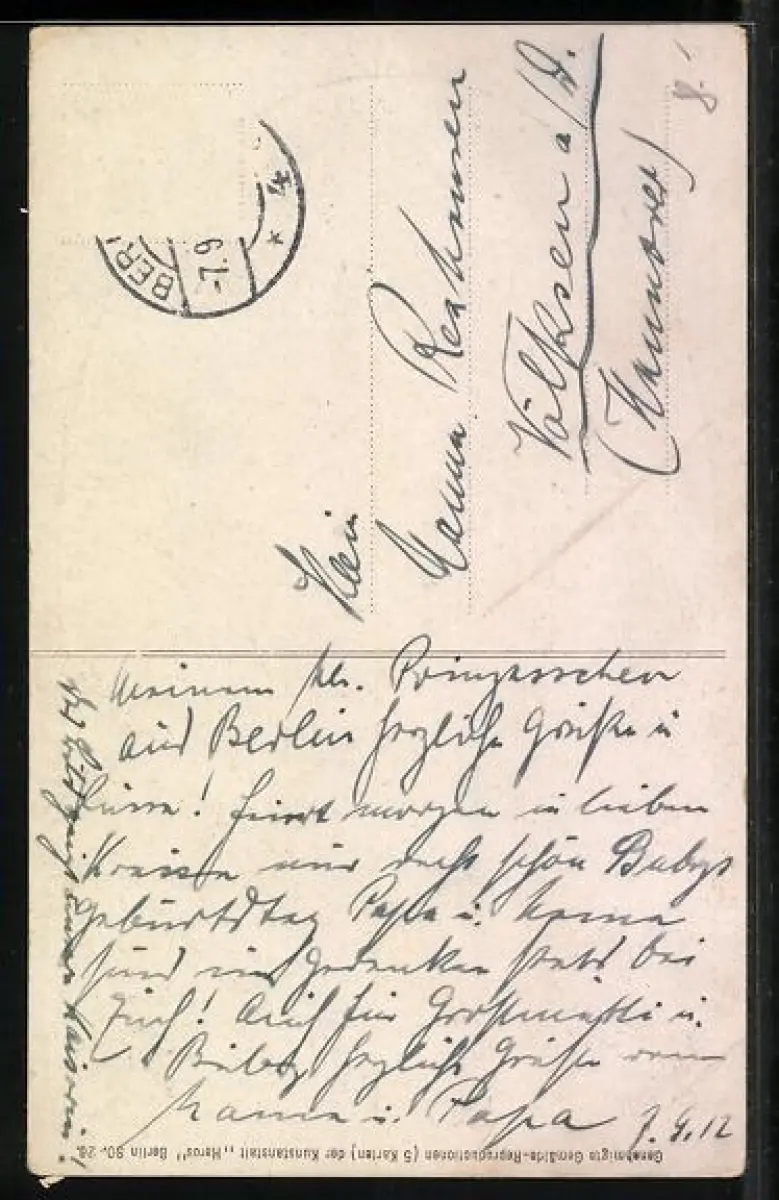 BER
-7.9
* 4
8.
Klein
Hanna Rexhausen
Völksen a/D.
(Hannover)
Meinem kl. Prinzesschen
aus Berlin herzliche Grüße u
Küsse! Feiert morgen in lieben
Kreisen nur recht schön Babys
Geburtstag Papa u. Mama
sind im Gedenken stets bei
Euch! Auch für Großmutti u.
Bubi herzliche Grüße von
Mama u. Papa 7.9.12
Das Bild zeigt unsere Kaiserin!
Genehmigte Gemälde-Reproductionen (5 Karten) der Kunstanstalt „Heros" Berlin SO. 26.